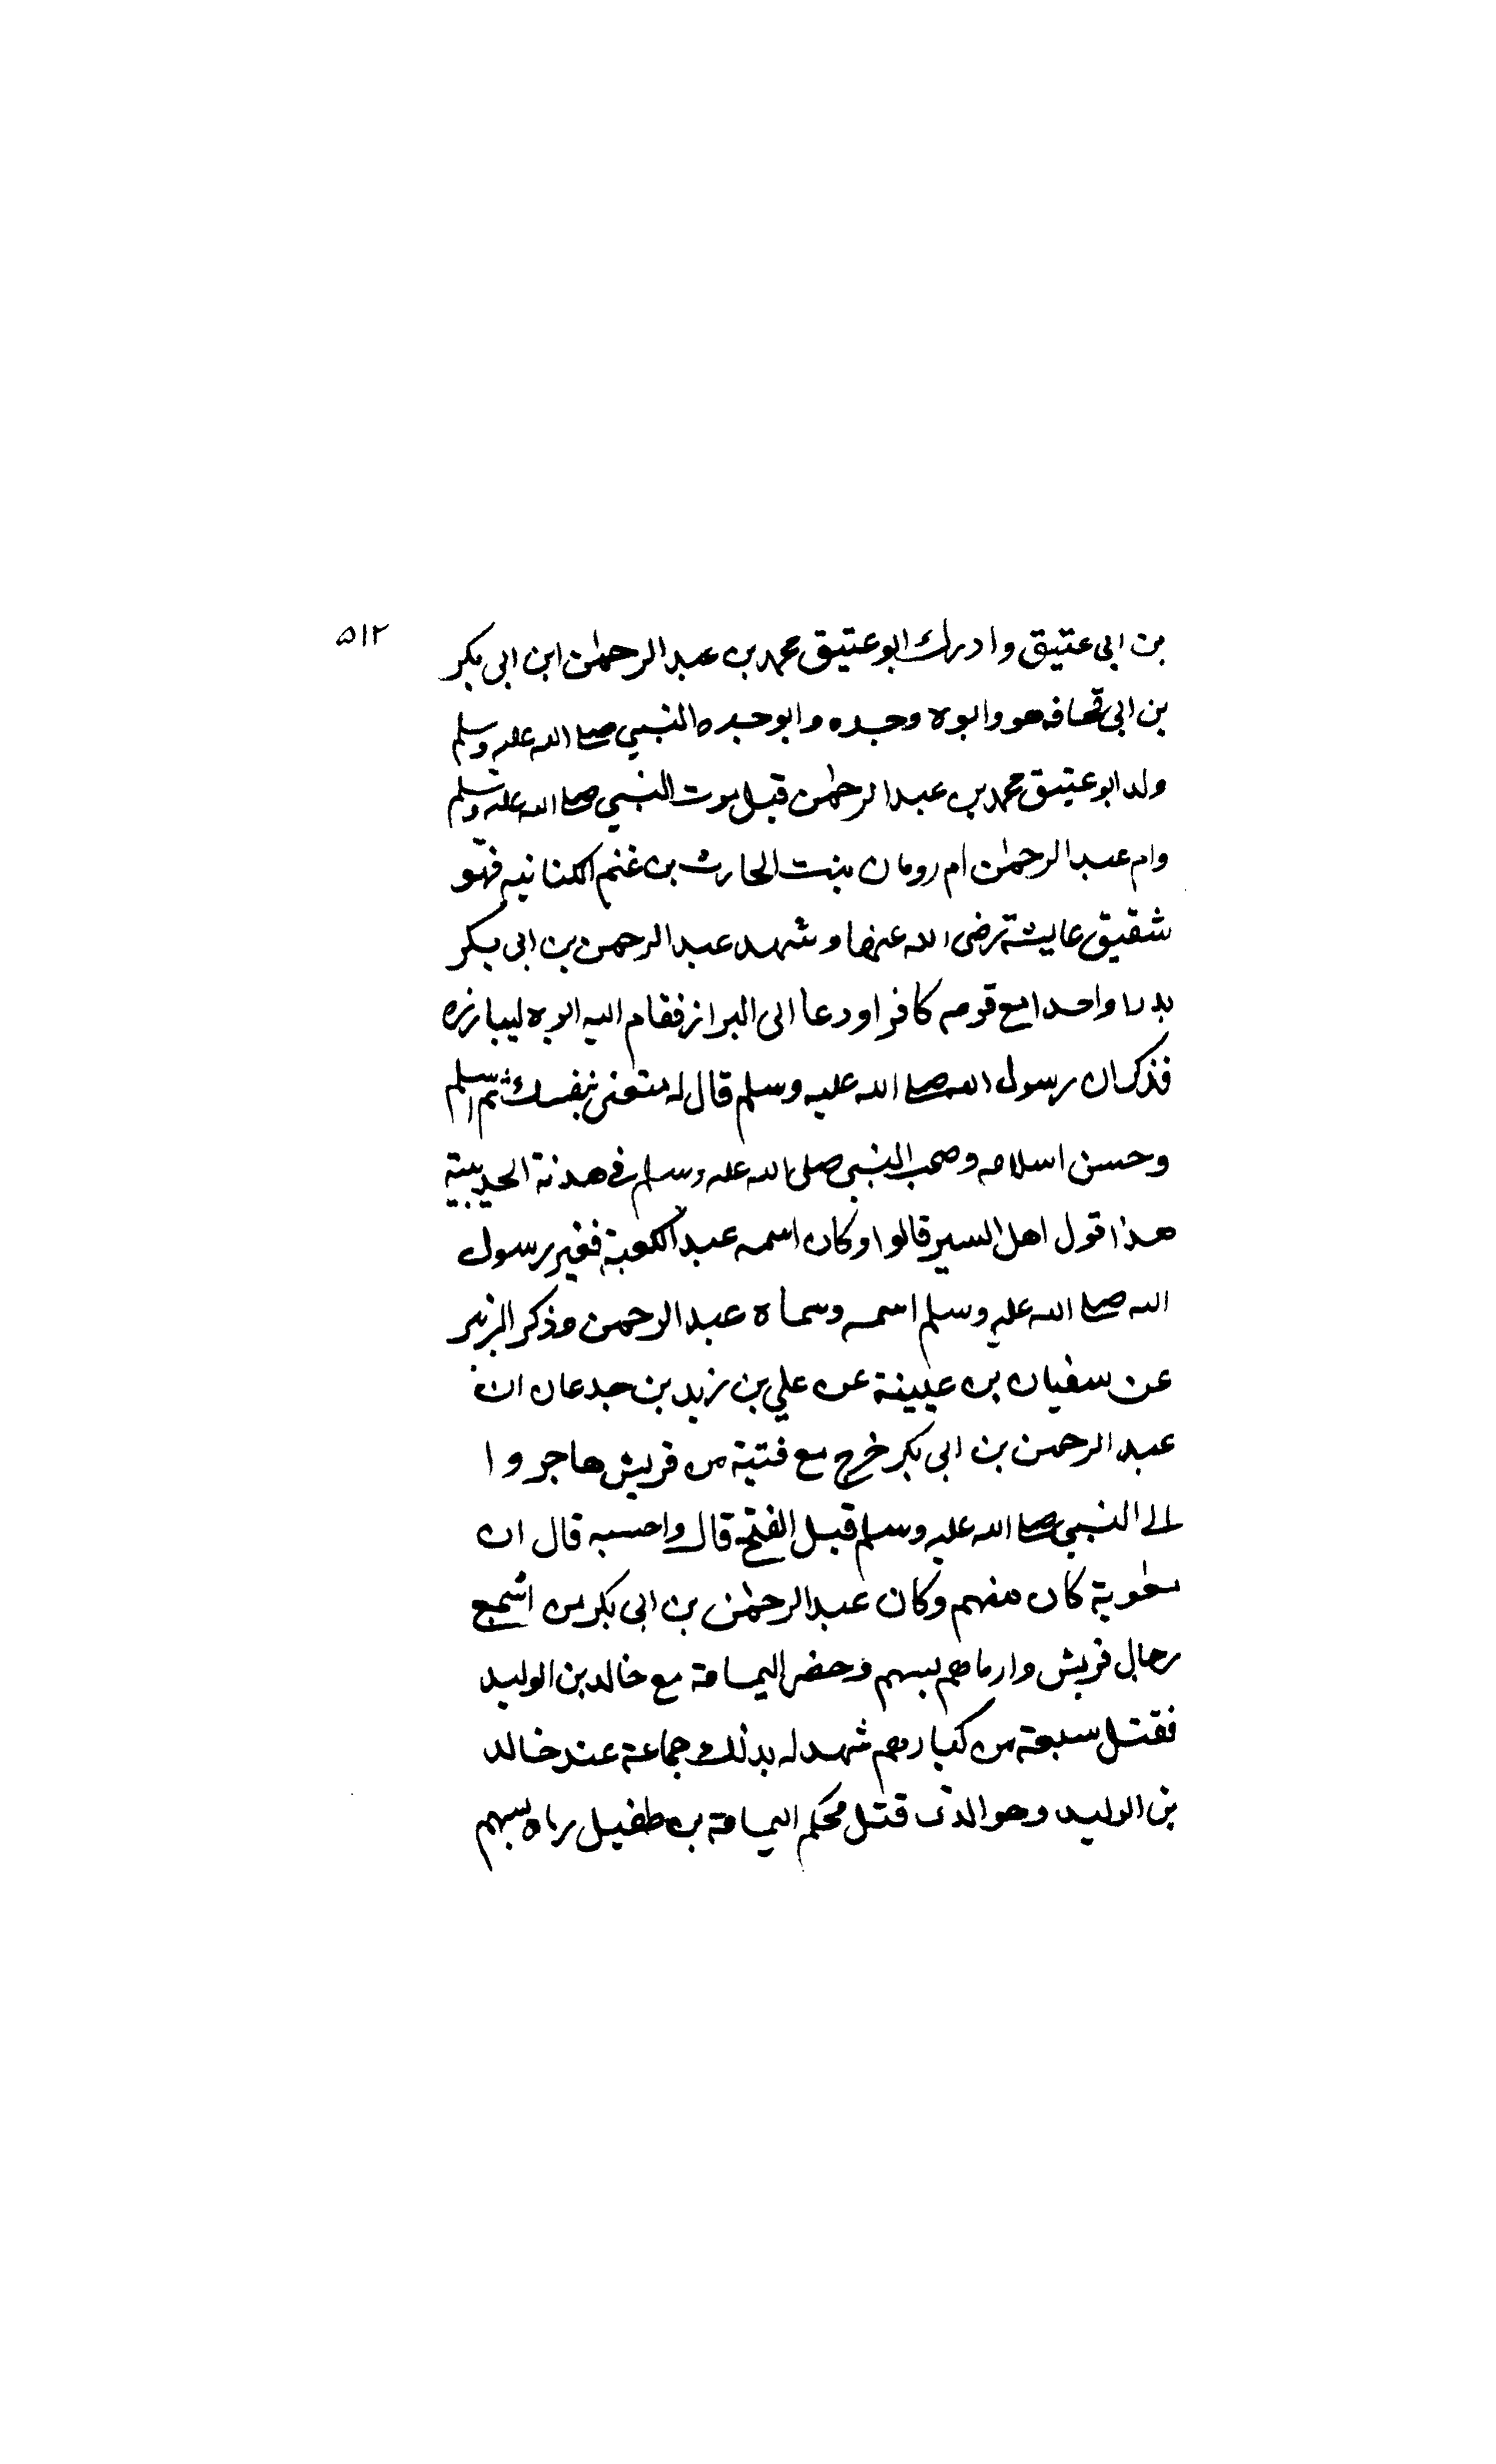 ٥١٢
بن ابى عتيق وادرك ابو عتيق محمد بن عبد الرحمٰن ابن ابى بكر
بن ابى قحافه هو وابوه وجده وابو جده النبي صلى الله عليه وسلم
ولد ابو عتيق محمد بن عبد الرحمٰن قبل موت النبي صلى الله عليه وسلم
وام عبد الرحمٰن ام رومان بنت الحارث بن غنم الكنانيه فهو
شقيق عايشة رضى الله عنها وشهد عبد الرحمن بن ابى بكر
بدرا واحدا مع قومه كافرا ودعا الى البراز فقام اليه ابوه ليبارزه
فذكر ان رسول الله صلى الله عليه وسلم قال له متعنى بنفسك ثم اسلم
وحسن اسلامه وصحب النبي صلى الله عليه وسلم في هدنة الحديبية
هذا قول اهل السير قالوا وكان اسمه عبد الكعبة فغير رسول
الله صلى الله عليه وسلم اسمه وسماه عبد الرحمن وذكر الزبير
عن سفيان بن عيينة عن علي بن زيد بن جدعان ان
عبد الرحمن بن ابى بكر خرج مع فتية من قريش هاجروا
الى النبي صلى الله عليه وسلم قبل الفتح قال واحسبه قال ان
معٰوية كان منهم وكان عبد الرحمٰن بن ابى بكر من اشجع
رجال قريش وارماهم بسهم وحضر اليمامة مع خالد بن الوليد
فقتل سبعة من كبارهم شهد له بذلك جماعة عند خالد
بن الوليد وهو الذى قتل محكم اليمامة بن طفيل رماه بسهم